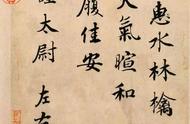 惠水林檎
天氣暄和
履佳安
太尉 左右